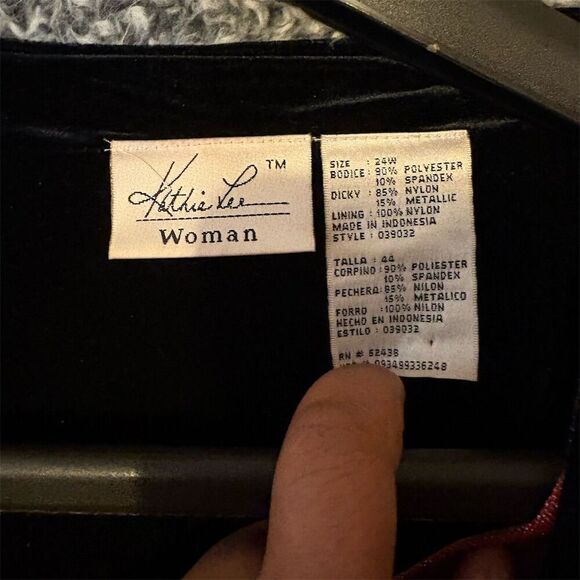 Kathie Lee ™
Woman
SIZE : 24W
BODICE : 90% POLYESTER
10% SPANDEX
DICKY : 85% NYLON
15% METALLIC
LINING : 100% NYLON
MADE IN INDONESIA
STYLE : 039032
TALLA : 44
CORPINO : 90% POLIESTER
10% SPANDEX
PECHERA : 85% NILON
15% METALICO
FORRO : 100% NILON
HECHO EN INDONESIA
ESTILO : 039032
RN # 52438
093499336248